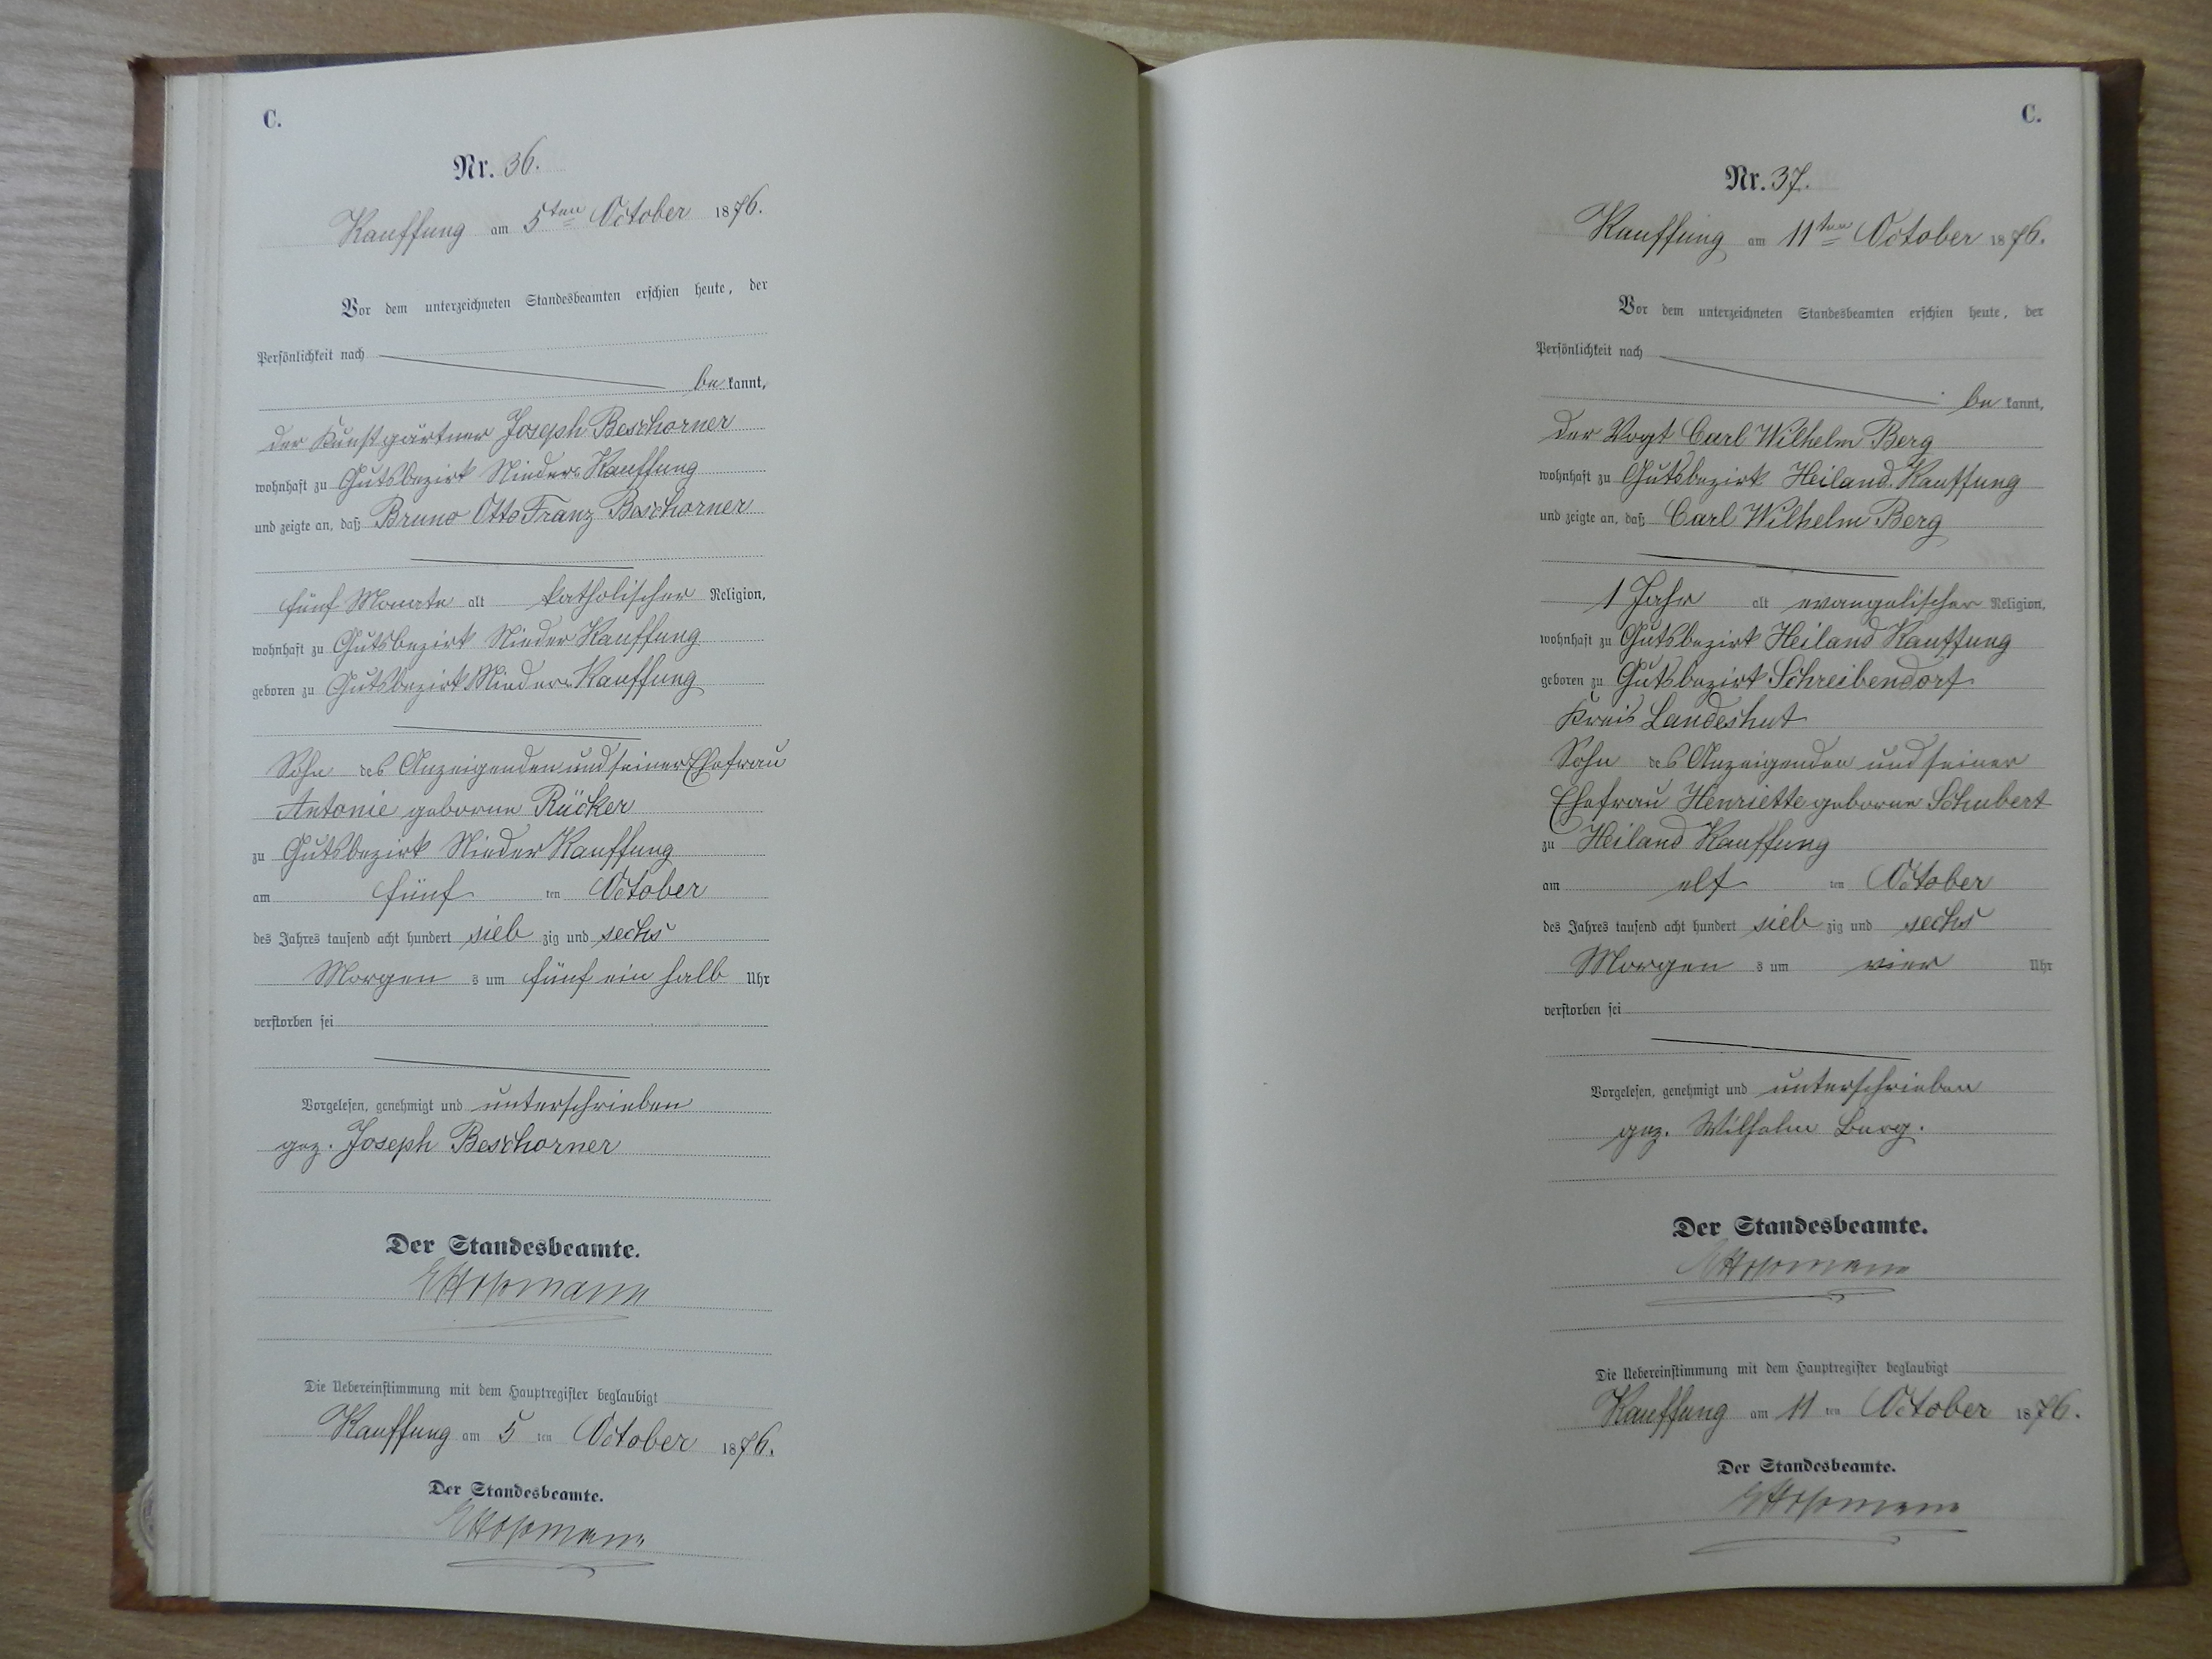 C.
Nr. 36.
Kauffung am 5ten October 1876.
Vor dem unterzeichneten Standesbeamten erschien heute, der
Persönlichkeit nach
be kannt,
der Kunstgärtner Joseph Beschorner
wohnhaft zu Gutsbezirk Nieder Kauffung
und zeigte an, daß Bruno Otto Franz Beschorner
fünf Monate alt katholischer Religion,
wohnhaft zu Gutsbezirk Nieder Kauffung
geboren zu Gutsbezirk Nieder Kauffung
Sohn des Anzeigenden und seiner Ehefrau
Antonie geborne Rücker
zu Gutsbezirk Nieder Kauffung
am fünf ten October
des Jahres tausend acht hundert sieb zig und sechs
Morgen s um fünf ein halb Uhr
verstorben sei
Vorgelesen, genehmigt und unterschrieben
gez. Joseph Beschorner
Der Standesbeamte.
Die Uebereinstimmung mit dem Hauptregister beglaubigt
Kauffung am 5 ten October 1876.
Der Standesbeamte.
C.
Nr. 37.
Kauffung am 11ten October 1876.
Vor dem unterzeichneten Standesbeamten erschien heute, der
Persönlichkeit nach
be kannt,
der Vogt Carl Wilhelm Berg
wohnhaft zu Gutsbezirk Heiland Kauffung
und zeigte an, daß Carl Wilhelm Berg
1 Jahr alt evangelischer Religion,
wohnhaft zu Gutsbezirk Heiland Kauffung
geboren zu Gutsbezirk Schreibendorf
Kreis Landeshut
Sohn des Anzeigenden und seiner
Ehefrau Henriette geborne Schubert
zu Heiland Kauffung
am elf ten October
des Jahres tausend acht hundert sieb zig und sechs
Morgen s um vier Uhr
verstorben sei
Vorgelesen, genehmigt und unterschrieben
gez. Wilhelm Berg.
Der Standesbeamte.
Die Uebereinstimmung mit dem Hauptregister beglaubigt
Kauffung am 11 ten October 1876.
Der Standesbeamte.